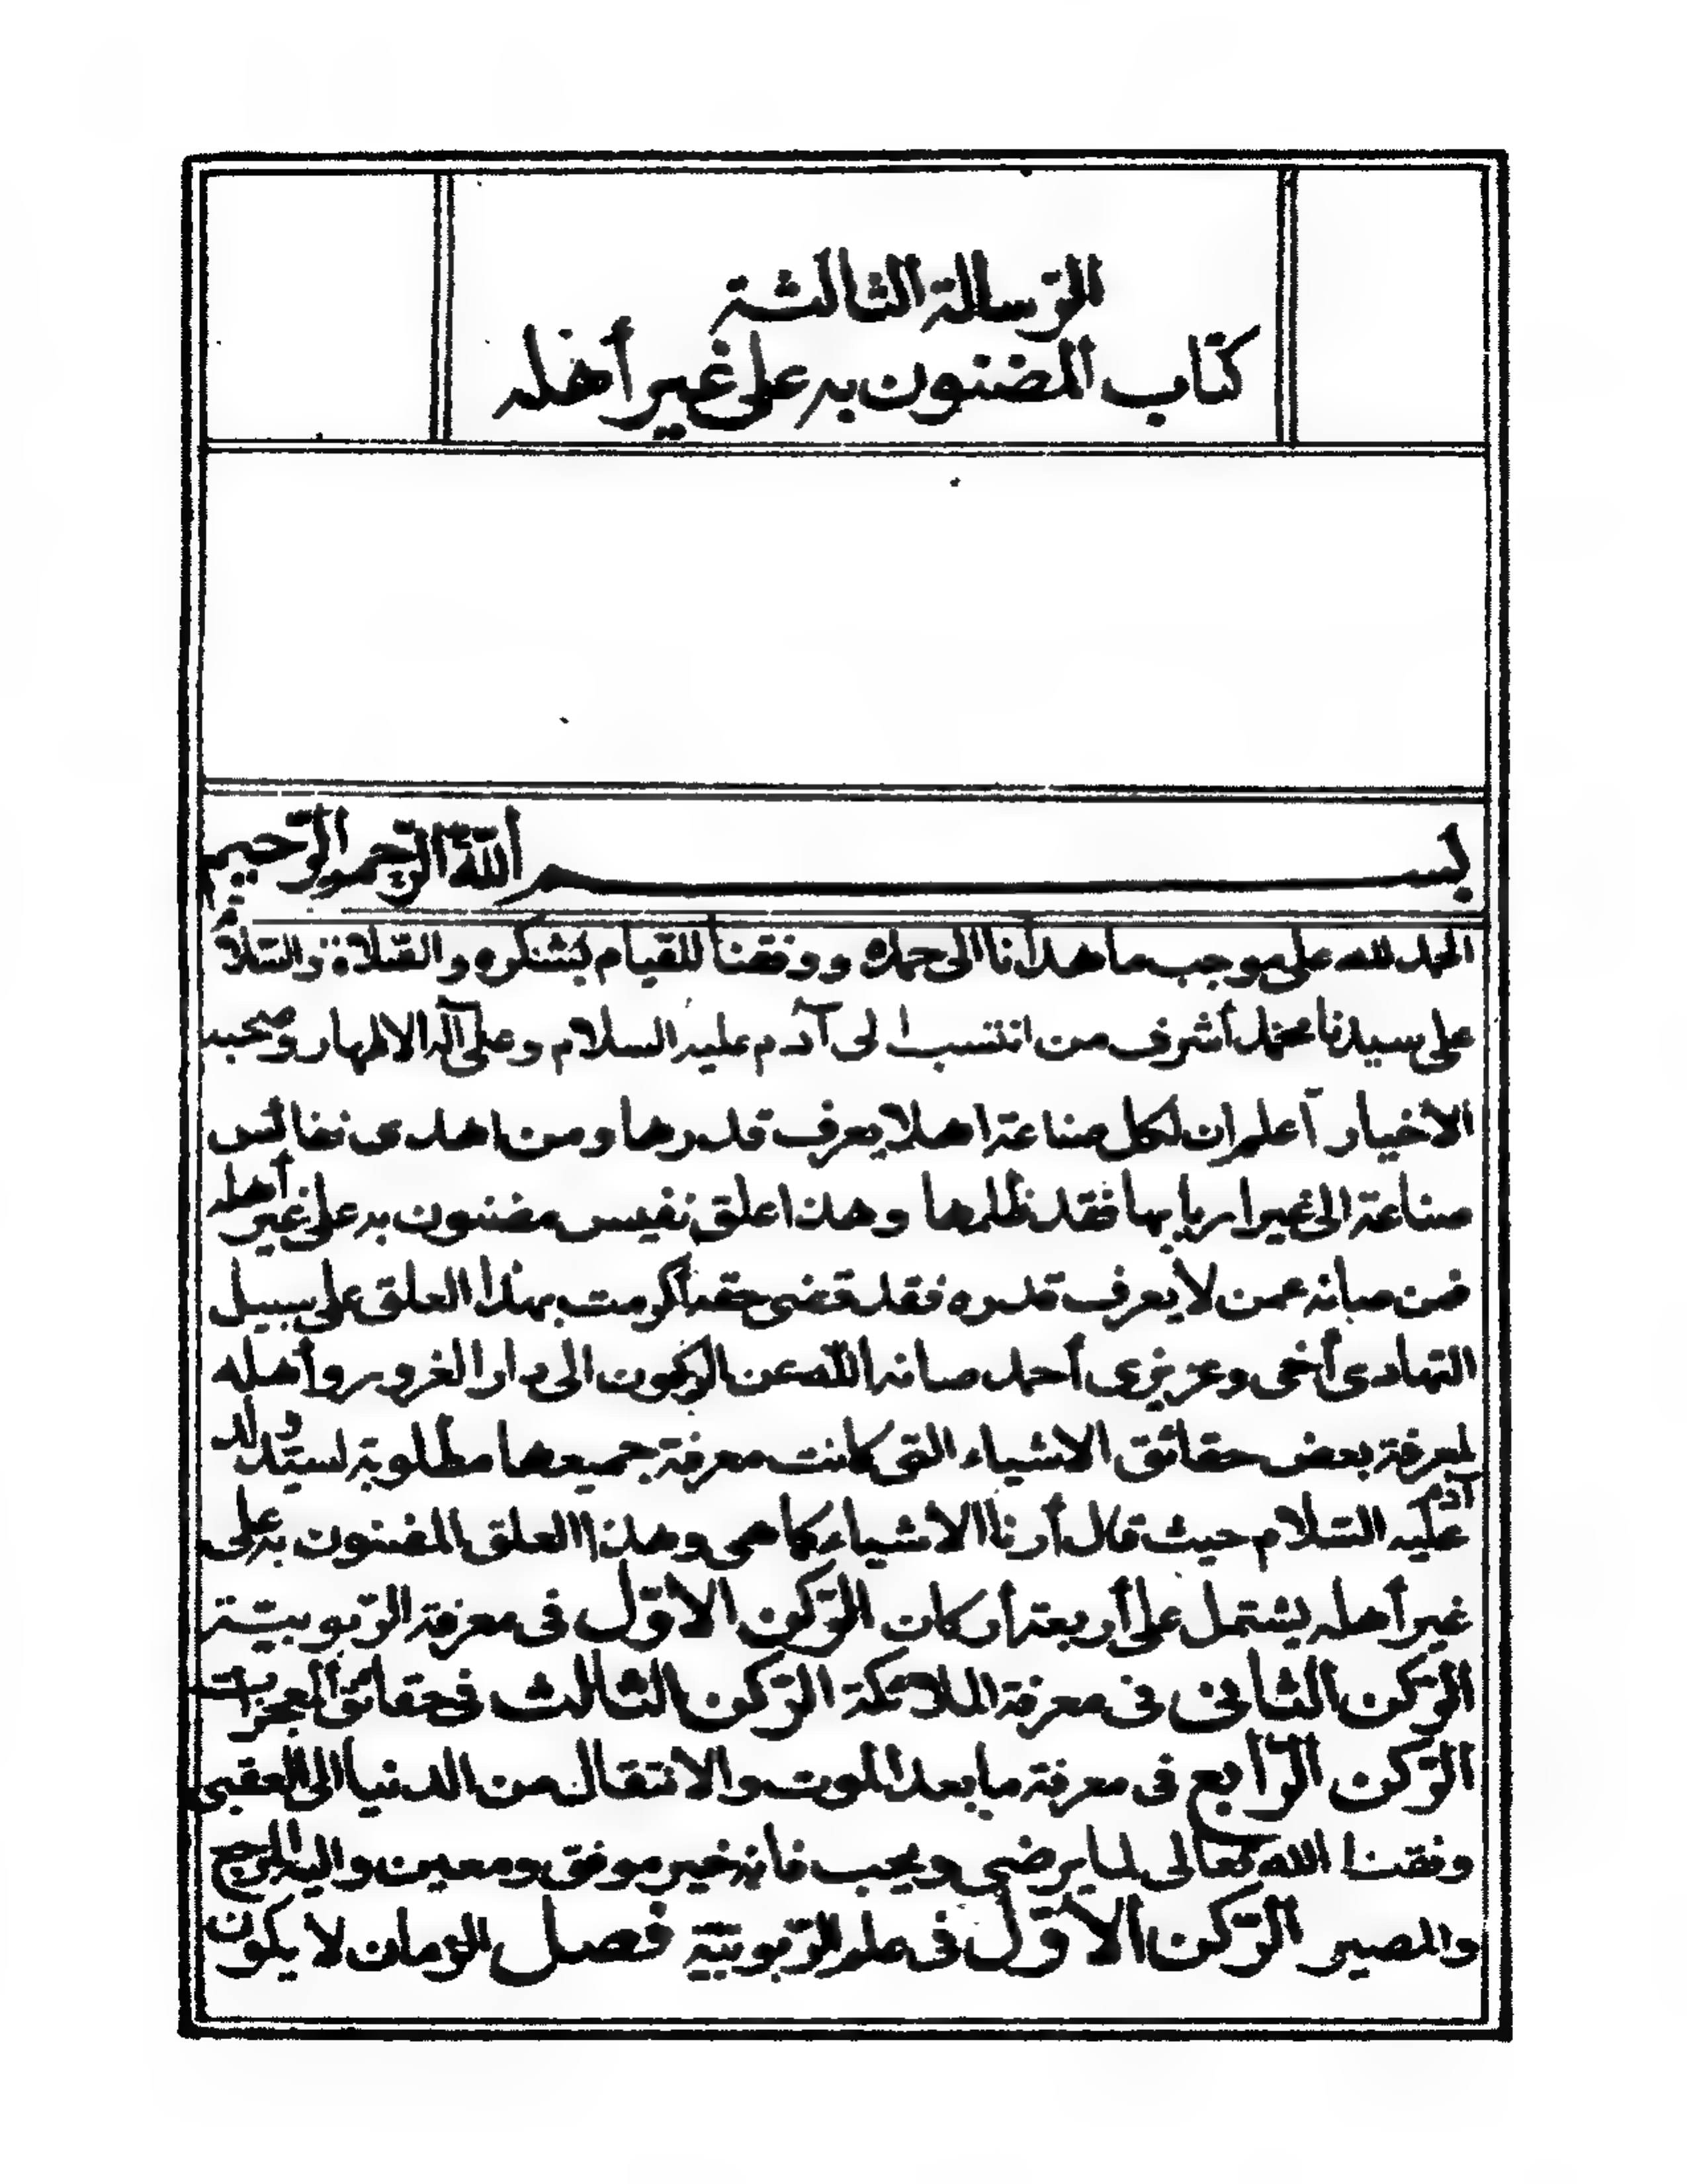 الرّسالة الثالثة
كتاب المضنون به على غير أهله
بسم ألله الرّحمن الرّحيم
الحمد لله على موجب ما هدأنا الى حمده ووفقنا للقيام بشكره والصّلاة والسّلام
على سيدنا محمّد أشرف من انتسب الى آدم عليه السلام وعلى آله الاطهار وصحبه
الاخيار آعلم ان لكل صناعة اهلا يعرف قدرها ومن اهدى نفائس
صناعة الى غير اربابها فقد ظلمها وهذا علق نفيس مضنون به على غير أهله
فمن صانه عمن لا يعرف قدره فقد قضى حقه أكرمت بهذا العلق على سبيل
التهادى أخى وعزيزى أحمد صانه الله عن الركون الى دار الغرور وأهله
لمعرفة بعض حقائق الاشياء التى كانت معرفة جميعها مطلوبة لسيّد ولد
آدم عليه السّلام حيث قال أرنا الاشياء كما هى وهذا العلق المضنون به على
غير أهله يشتمل على أربعة أركان الرّكن الاوّل فى معرفة الرّبوبيّة
الرّكن الثانى فى معرفة الملائكة الرّكن الثالث فى حقائق المعجزات
الرّكن الرّابع فى معرفة ما بعد الموت والانتقال من الدنيا الى العقبى
وفقنا الله تعالى لما يرضى ويحب فانه خير موفق ومعين واليه المرجع
والمصير الرّكن الاوّل فى علم الرّبوبيّة فصل الزمان لا يكون